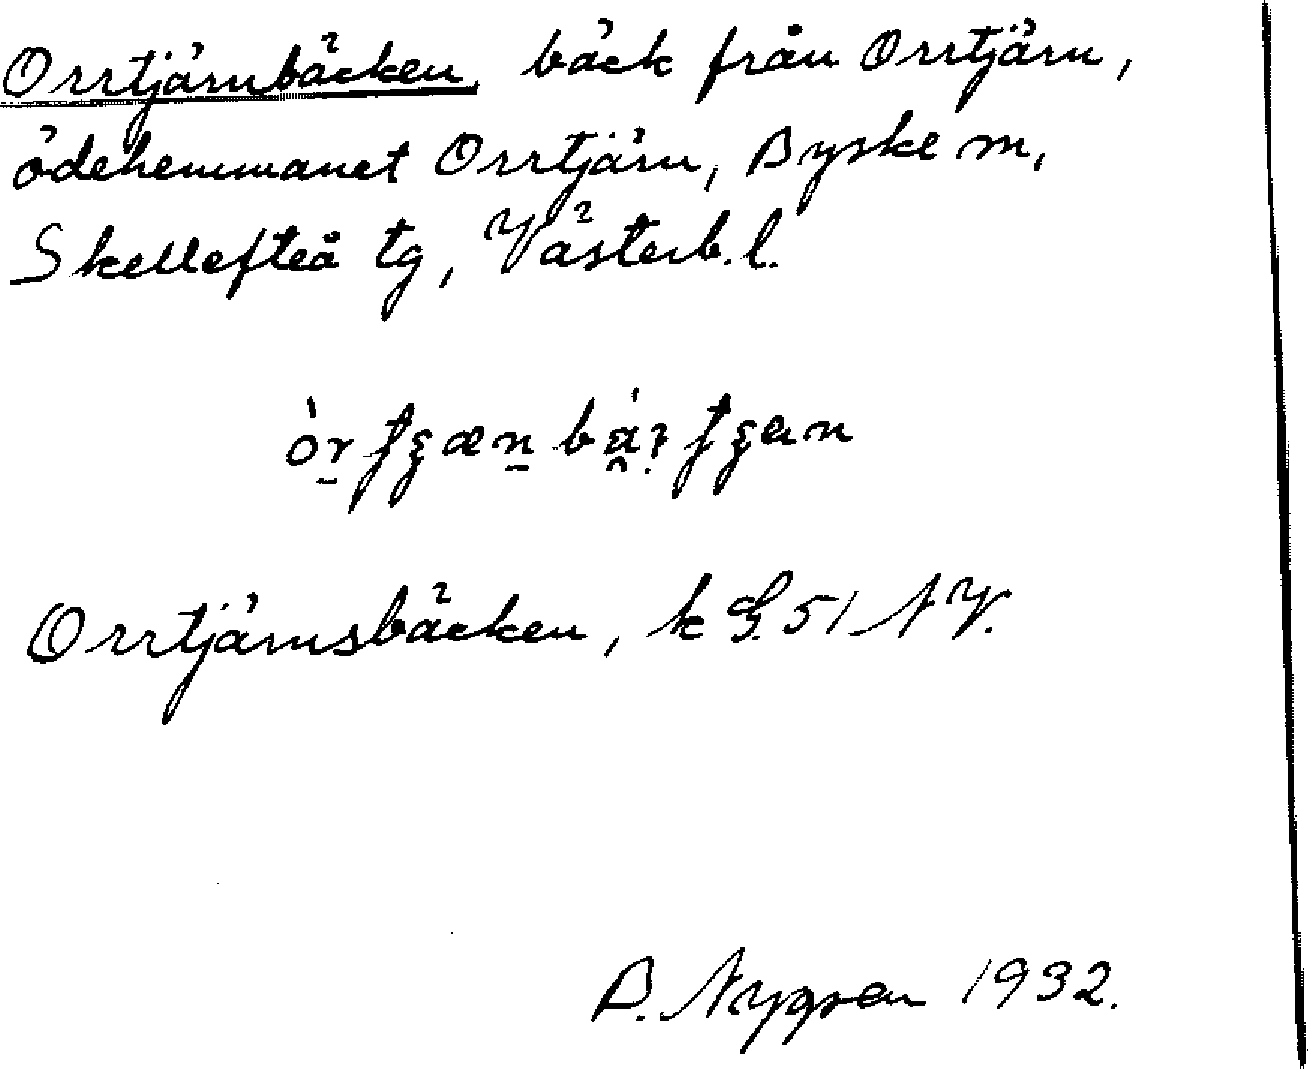 Orrtjärnbäcken, bäck från Orrtjärn,
ödehemmanet Orrtjärn, Byske sn,
Skellefteå tg, Västerb. l.
Orrtjärnsbäcken, k G. 51 NV.
B. Nygren 1932.